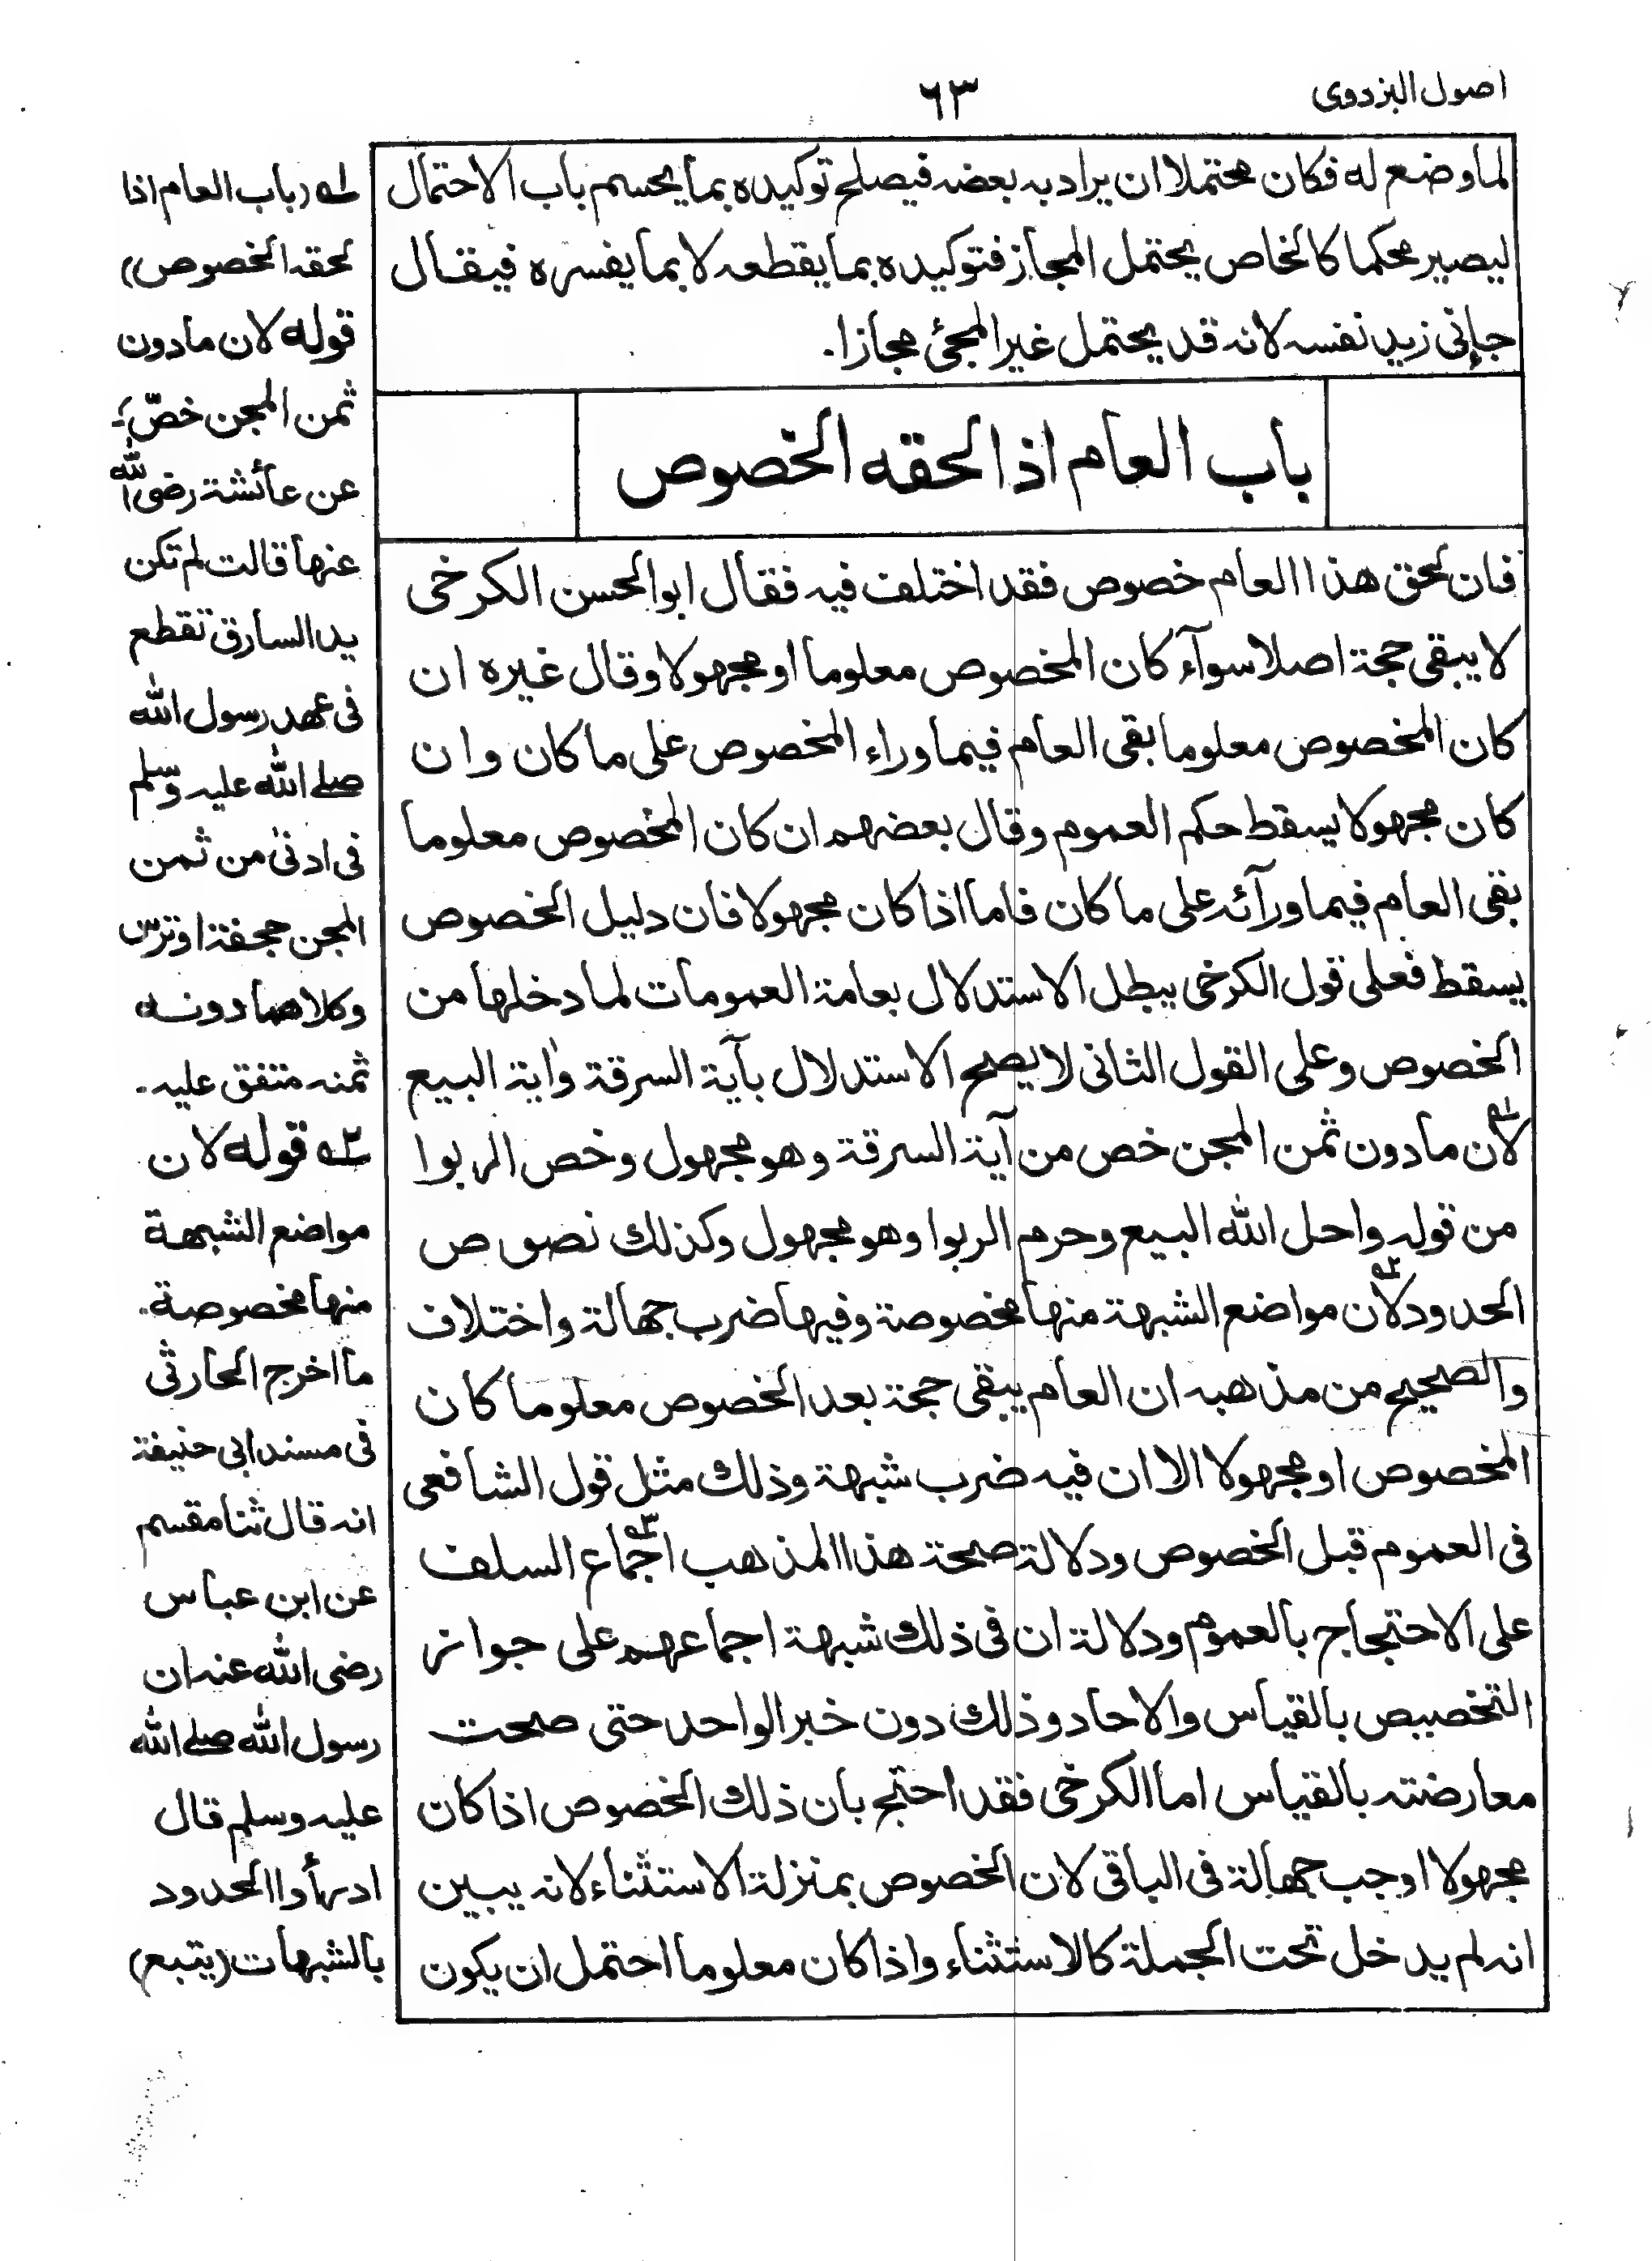 اصول البزدوی
٦٣
لما وضع له فكان محتملا ان يراد به بعضه فيصلح توكيده بما يحسم باب الاحتمال
ليصير محكما كالخاص يحتمل المجاز فتوكيده بما يقطعه لا بما يفسره فيقال
جاءنى زيد نفسه لانه قد يحتمل غير المجئ مجازا.
باب العام اذا لحقه الخصوص
فان لحق هذا العام خصوص فقد اختلف فيه فقال ابوالحسن الكرخى
لا يبقى حجة اصلا سوآء كان المخصوص معلوما او مجهولا وقال غيره ان
كان المخصوص معلوما بقى العام فيما وراء المخصوص على ما كان وان
كان مجهولا يسقط حكم العموم وقال بعضهم ان كان المخصوص معلوما
بقى العام فيما ورآئه على ما كان فاما اذا كان مجهولا فان دليل الخصوص
يسقط فعلى قول الكرخى يبطل الاستدلال بعامة العمومات لما دخلها من
الخصوص وعلى القول الثانى لا يصح الاستدلال بآية السرقة واية البيع
لان ما دون ثمن المجن خص من آية السرقة وهو مجهول وخص الربوا
من قوله واحل الله البيع وحرم الربوا وهو مجهول وكذلك نصوص
الحدود لان مواضع الشبهة منها مخصوصة وفيها ضرب جهالة واختلاف
والصحيح من مذهبه ان العام يبقى حجة بعد الخصوص معلوما كان
المخصوص او مجهولا الا ان فيه ضرب شبهة وذلك مثل قول الشافعى
فى العموم قبل الخصوص ودلالة صحة هذا المذهب اجماع السلف
على الاحتجاج بالعموم ودلالة ان فى ذلك شبهة اجماعهم على جواز
التخصيص بالقياس والاحاد وذلك دون خبر الواحد حتى صحت
معارضته بالقياس اما الكرخى فقد احتج بان ذلك الخصوص اذا كان
مجهولا اوجب جهالة فى الباقى لان الخصوص بمنزلة الاستثناء لانه يبين
انه لم يدخل تحت الجملة كالاستثناء واذا كان معلوما احتمل ان يكون
١ (باب العام اذا
لحقه الخصوص)
قوله لان ما دون
ثمن المجن خصّ
عن عائشة رضى الله
عنها قالت لم تكن
يد السارق تقطع
فى عهد رسول الله
صلى الله عليه وسلم
فى ادنى من ثمن
المجن حجفة او ترس
وكلاهما دونه
ثمنه متفق عليه.
٢ قوله لان
مواضع الشبهة
منها مخصوصة.
ما اخرج الحارثى
فى مسند ابى حنيفة
انه قال ثنا مقسم
عن ابن عباس
رضى الله عنه ان
رسول الله صلى الله
عليه وسلم قال
ادرأوا الحدود
بالشبهات (يتبع)